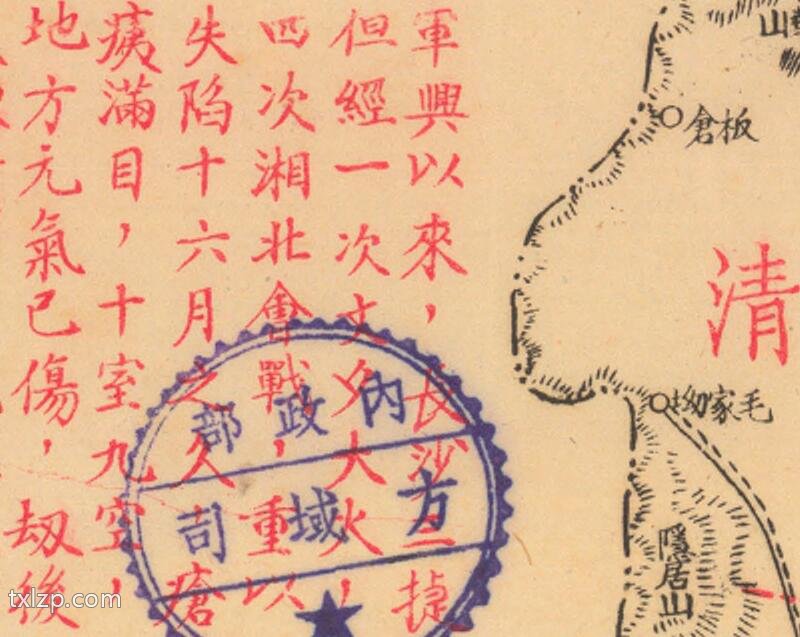 軍興以來，長沙三捷
但經一次文夕大火，
四次湘北會戰，重以
失陷十六月之久，瘡
痍滿目，十室九空，
地方元氣已傷，劫後
內政部
方域司
板倉
清
毛家坳
隱居山
山
txlzp.com